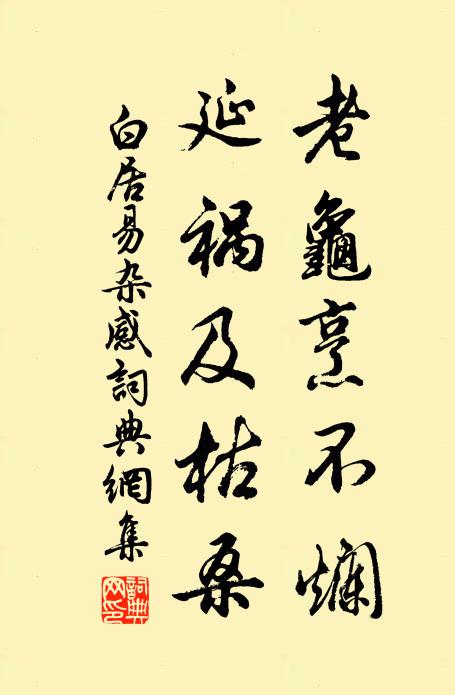 老龜烹不爛
延祸及枯桑
白居易杂感詞典網集
詞典网印